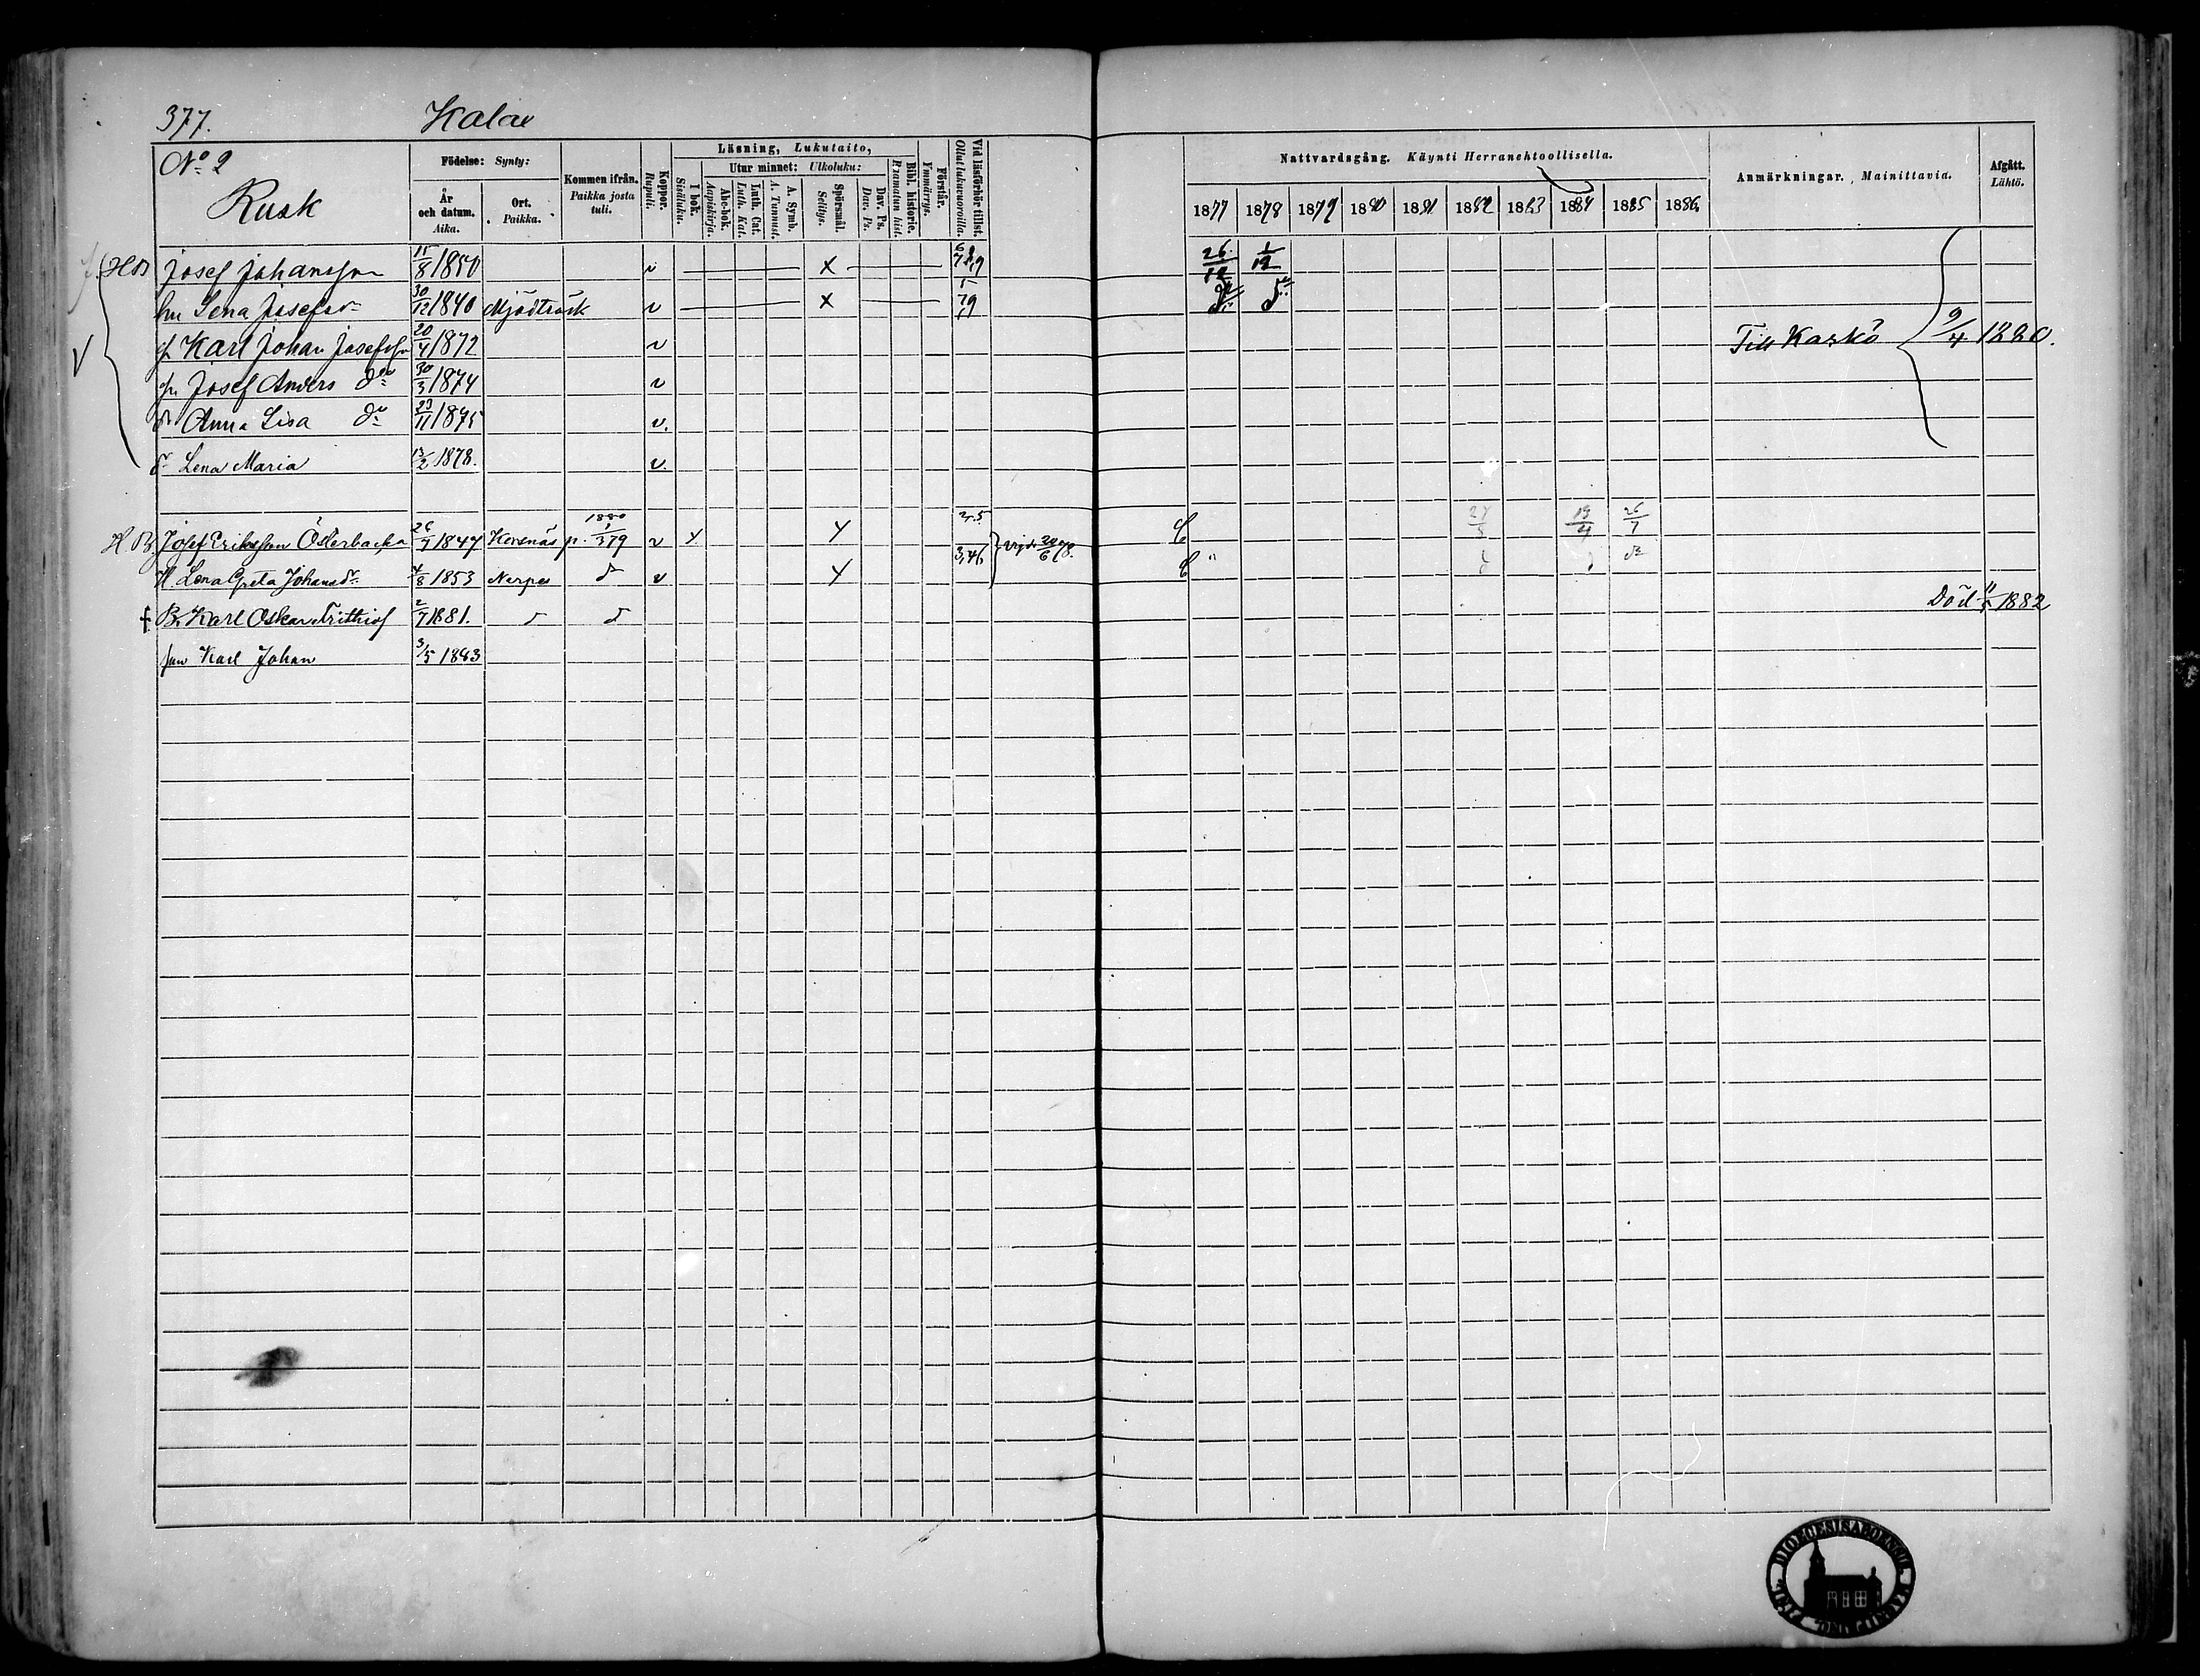 377. Kalax
No 2
Rusk
Födelse: Synty:
År och datum. Aika.
Ort. Paikka.
Kommen ifrån. Paikka josta tuli.
Koppor. Rupuli.
Läsning, Lukutaito,
I bok. Sisäluku.
Utur minnet: Ulkoluku:
Abc-bok. Aapiskirja.
Luth. Cat. Luth. Kat.
A. Symb. A. Tunnust.
Spörsmål. Selitys.
Dav. Ps. Dav. Ps.
Bibl. historie. Pramatun hist.
Förstår. Ymmärrys.
Vid läsförhör tillst. Ollut lukuvuoroilla.
Nattvardsgång. Käynti Herranehtoollisella.
1877 1878 1879 1880 1881 1882 1883 1884 1885 1886
Anmärkningar. Mainittavia.
Afgått. Lähtö.
HB Josef Johansson 15/8 1850 v X 26/12 1/12
hu Lena Josefsdr 30/12 1840 Mjödträsk v X 79 do do
Karl Johan Josefsson 20/4 1872 v Till Kaskö 9/4 1880.
Josef Anders do 30/3 1874 v
dr Anna Lisa do 23/11 1875 v.
dr Lena Maria 13/2 1878. v.
H. B. Josef Eriksson Österbacka 26/7 1847 Korsnäs p. 1880 1/3 79 v y y 2,5 Vigde 24/6 78. C 27/5 19/4 26/7
H. Lena Greta Johansdr 4/8 1853 Nerpes d v y 3,4 C
† B. Karl Oskar Frithiof 2/7 1881. Död 1882
son Karl Johan 3/5 1883